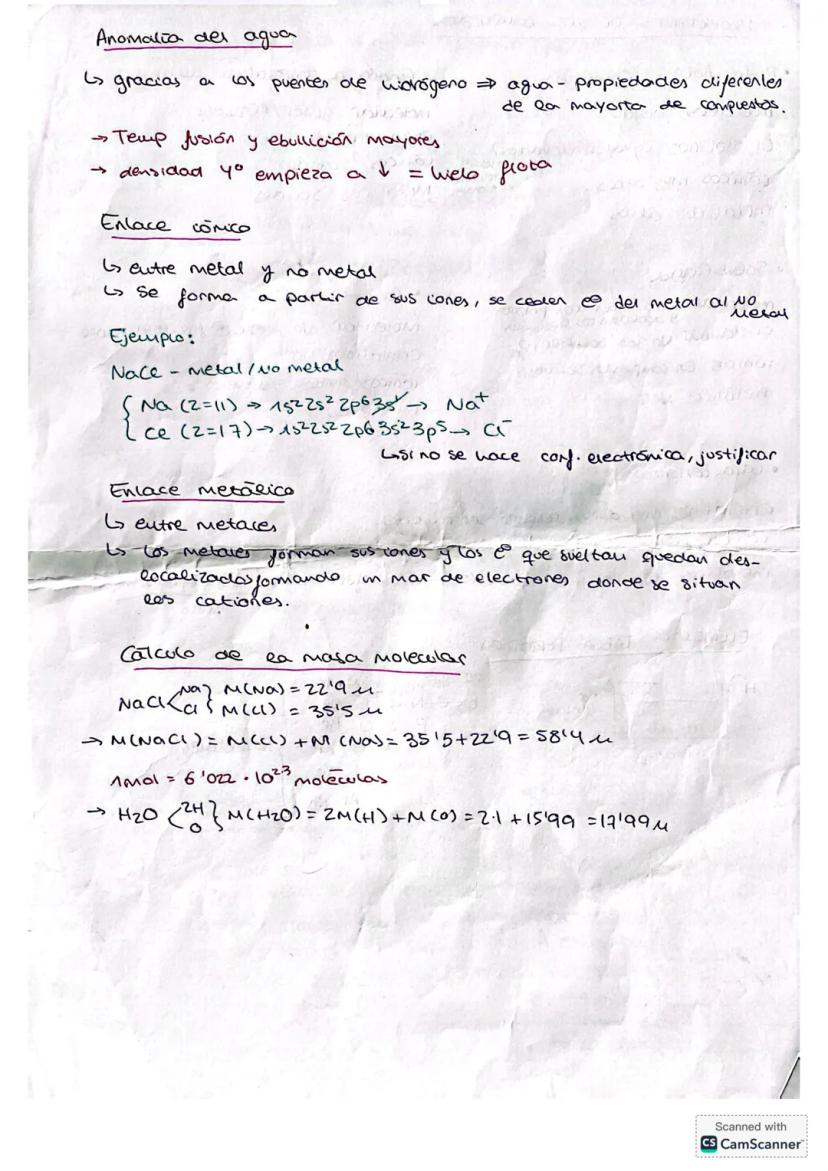 Anomalía del agua
↳ gracias a los puentes de hidrógeno ⇒ agua - propiedades diferentes
de la mayoría de compuestos.
→ Temp fusión y ebullición mayores
→ densidad 4º empieza a ↓ = hielo flota
Enlace iónico
↳ entre metal y no metal
↳ Se forma a partir de sus iones, se ceden e⊖ del metal al NO
Metal
Ejemplo:
NaCl - metal/No metal
{ Na (Z=11) → 1s² 2s² 2p⁶ 3s¹ → Na⁺
{ Cl (Z=17) → 1s² 2s² 2p⁶ 3s² 3p⁵ → Cl⁻
↳ Si no se hace conf. electrónica, justificar
Enlace metálico
↳ entre metales
↳ Los metales forman sus iones y los e⊖ que sueltan quedan des-
localizados formando un mar de electrones donde se situan
los cationes.
Cálculo de la masa molecular
NaCl < Na } M(Na) = 22'9 u
Cl } M(Cl) = 35'5 u
→ M(NaCl) = M(Cl) + M(Na) = 35'5 + 22'9 = 58'4 u
1 mol = 6'022 · 10²³ moléculas
→ H2O < 2H } M(H2O) = 2M(H) + M(O) = 2·1 + 15'99 = 17'99 u
O }
Scanned with
CS CamScanner